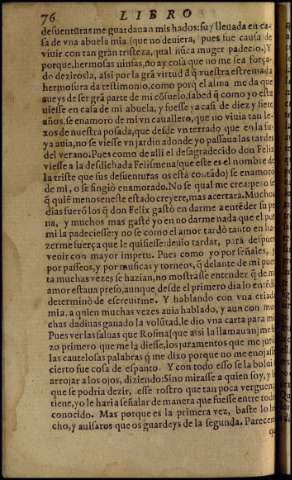 76 LIBRO
desuenturas me guardaua n mis hados: fuy lleuada en ca-
sa de vna abuela mia (que no deuiera, pues fue causa de
viuir con tan gran tristeza, qual nũca muger padecio.) Y
porque, hermosas ninfas, no ay cosa que no me sea força-
do dezirosla, assi por la grã virtud ã q̃ vuestra estremada
hermosura da testimonio, como porq̃ el alma me da que
aueys de ser grã parte de mi cõsuelo, sabed q̃ como yo estu
uiesse en casa de mi abuela, y fuesse ya casi de diez y siete
años, se enamoro de mi vn cauallero, que no viuia tan le-
xos de nuestra posada, que desde vn terrado que en la su-
ya auia, no se viesse vn jardin adonde yo passaua las tardes
del verano. Pues como de alli el desagradecido don Felix
viesse a la desdichada Felismena (que este es el nombre de
la triste que sus desuenturas os está contãdo) se enamoro
de mi, o se fingiò enamorado. No se qual me crea pero se
q̃ quié menos en este estado creyere, mas acertara. Muchos
dias fuerõ los q̃ don Felix gastò en darme a entẽder su pe
na, y muchos mas gastè yo en no darme nada que el por
mi la padeciesse: y no se como el amor tardò tanto en ha-
zerme fuerça que le quisiesse: deuio tardar, para despues
venir con mayor impetu. Pues como yo por señales, y
por passeos, y por musicas, y torneos, q̃ delante de mi puer
ta muchas vezes se hazian, no mostrasse entender q̃ de mi
amor estaua preso, aunque desde el primero dia lo entẽdi
determinò de escreuirme. Y hablando con vna criada
mia, a quien muchas vezes auia hablado, y aun con mu-
chas dadiuas ganado la volũtad, le dio vna carta para mi.
Pues ver las saluas que Rosina (que assi la llamauan) me hi
zo primero que me la diesse, los juramentos que me juro,
las cautelosas palabras q̃ me dixo porque no me enojasse,
cierto fue cosa de espanto. Y con todo esso se la bolui a
arrojar a los ojos, diziendo: Sino mirasse a quien soy, y lo
que se podria dezir, esse rostro que tan poca verguença
tiene, yo le haria señalar de manera que fuesse entre todos
conocido. Mas porque es la primera vez, baste lo he-
cho, y auisaros que os guardeys de la segunda. Pareceme